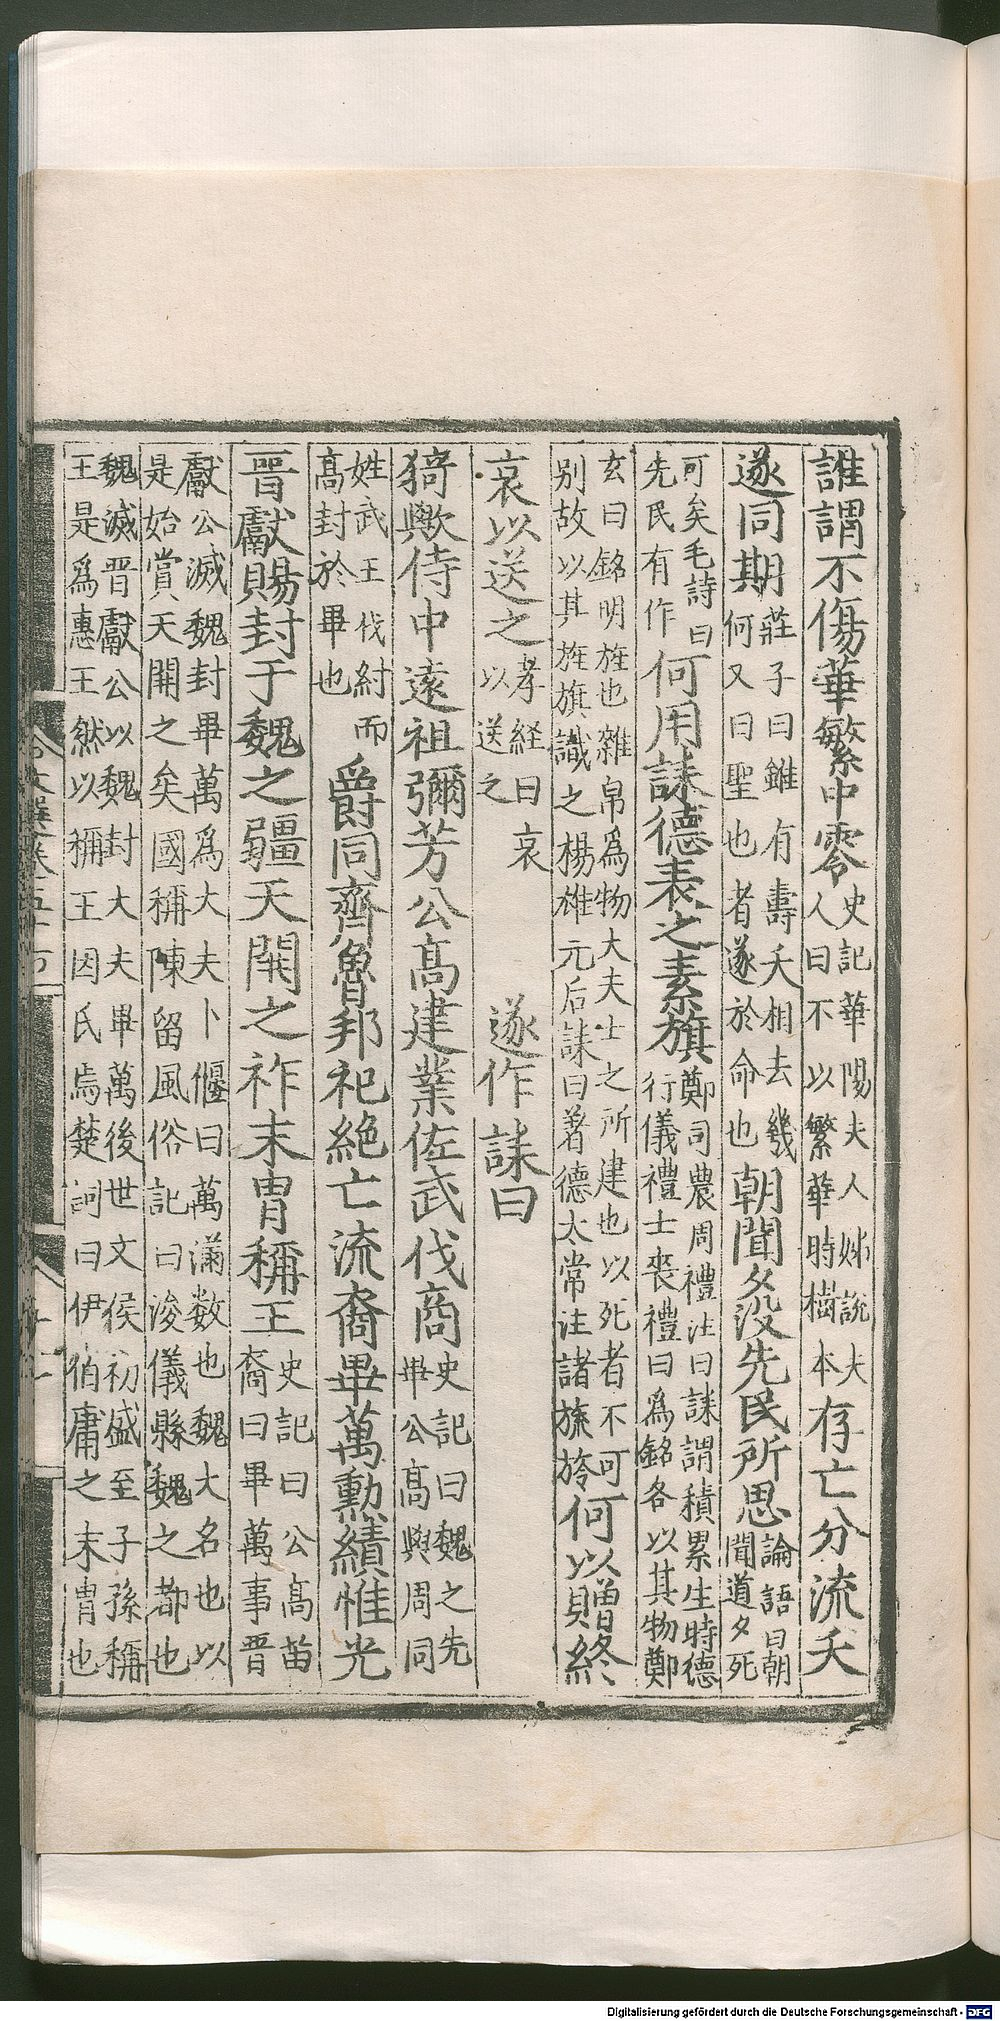 誰謂不傷華繁中零史記華陽夫人姊說夫人曰不以繁華時樹本存亡分流夭
遂同期莊子曰雖有壽夭相去幾何又曰聖也者遂於命也朝聞夕没先民所思論語曰朝聞道夕死
可矣毛詩曰先民有作何用誄德表之素旗鄭司農周禮注曰誄謂積累生時德行儀禮士喪禮曰爲銘各以其物鄭
玄曰銘明旌也雜帛爲物大夫士之所建也以死者不可别故以其旌旗識之楊雄元后誄曰著德太常注諸旒旍何以贈終
哀以送之孝經曰哀以送之遂作誄曰
猗歟侍中遠祖彌芳公高建業佐武伐商史記曰魏之先畢公高與周同
姓武王伐紂而高封於畢也爵同齊魯邦祀絶亡流裔畢萬勳績惟光
晋獻賜封于魏之疆天開之祚末胄稱王史記曰公高苗裔曰畢萬事晋
獻公滅魏封畢萬爲大夫卜偃曰萬滿数也魏大名也以是始賞天開之矣國稱陳留風俗記曰浚儀縣魏之都也
魏滅晋獻公以魏封大夫畢萬後世文侯初盛至子孫稱王是爲惠王然以稱王因氏焉楚詞曰伊伯庸之末胄也
文選卷五十六
十一
Digitalisierung gefördert durch die Deutsche Forschungsgemeinschaft - DFG